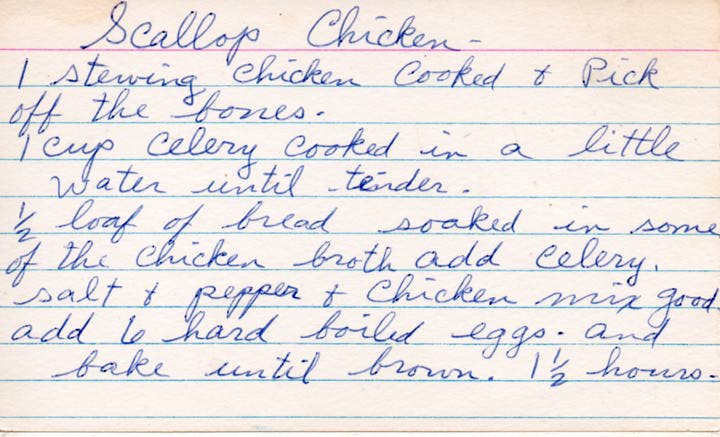 Scallop Chicken -
1 stewing chicken cooked & Pick
off the bones.
1 cup celery cooked in a little
water until tender.
½ loaf of bread soaked in some
of the chicken broth add celery.
salt & pepper & chicken mix good.
add 6 hard boiled eggs. and
bake until brown. 1½ hours.